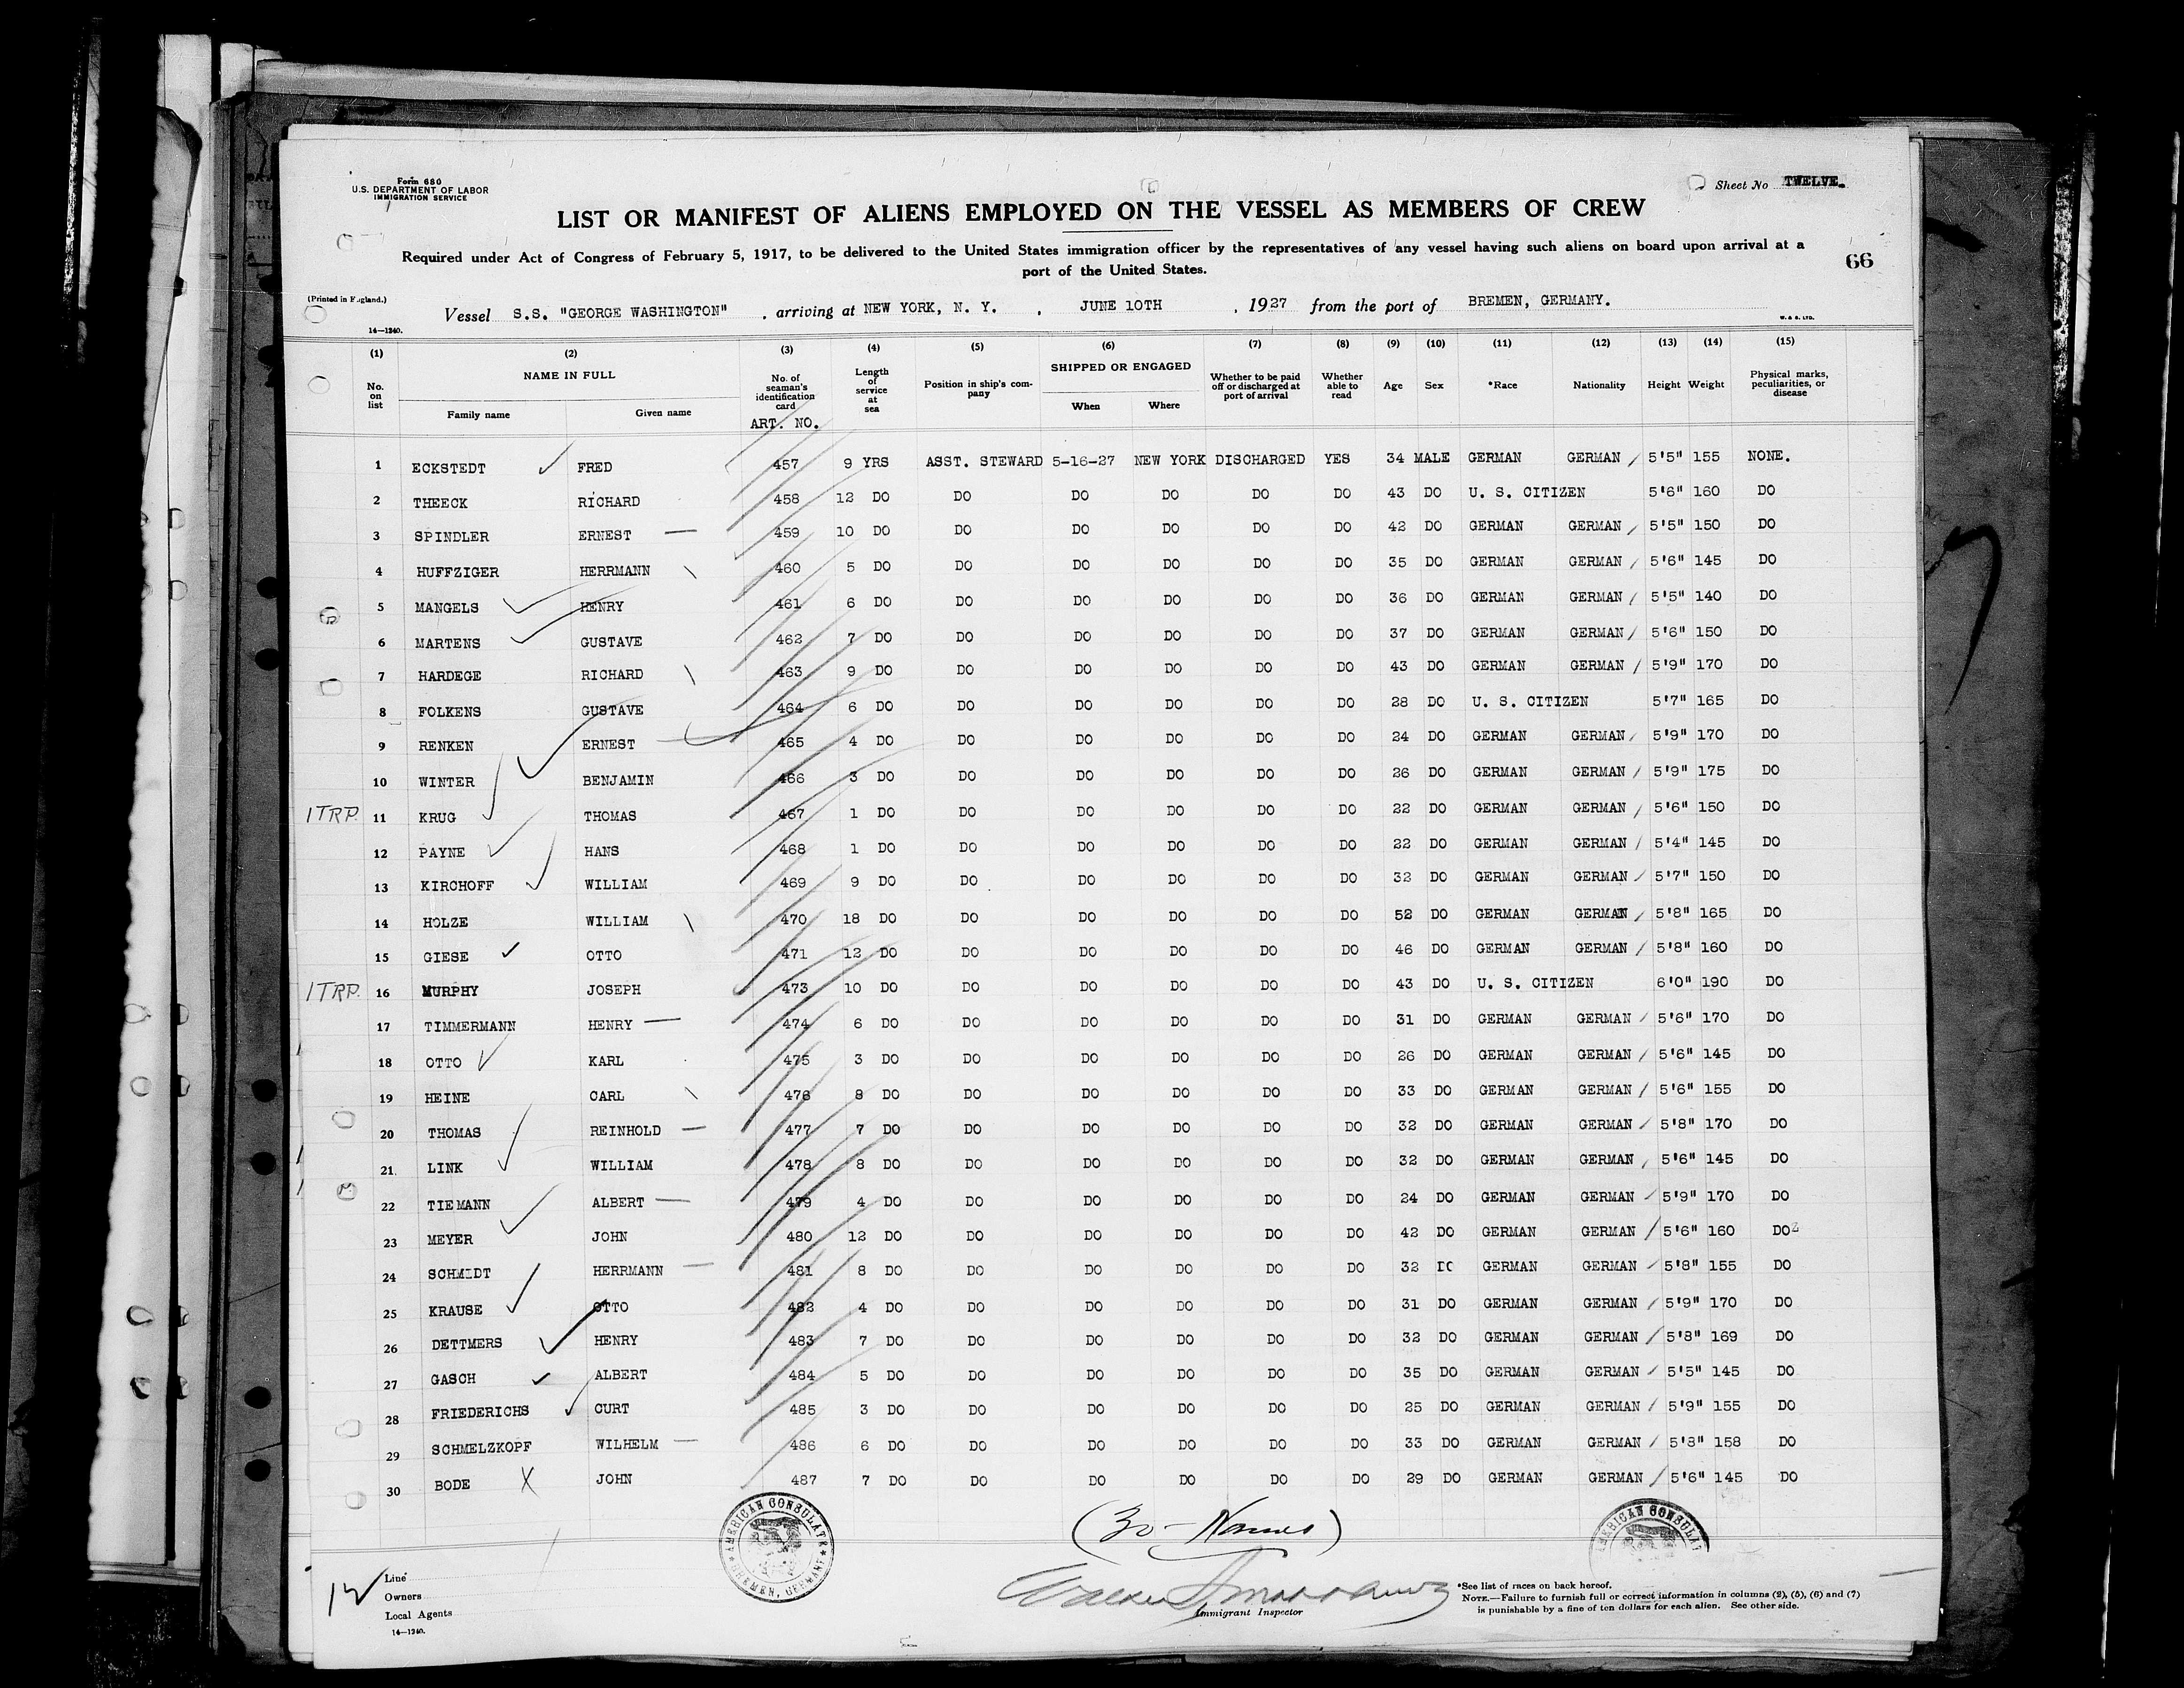 Form 680
U.S. DEPARTMENT OF LABOR
IMMIGRATION SERVICE
Sheet No TWELVE.
LIST OR MANIFEST OF ALIENS EMPLOYED ON THE VESSEL AS MEMBERS OF CREW
Required under Act of Congress of February 5, 1917, to be delivered to the United States immigration officer by the representatives of any vessel having such aliens on board upon arrival at a
port of the United States.
66
(Printed in England.)
Vessel S.S. "GEORGE WASHINGTON" , arriving at NEW YORK, N. Y. , JUNE 10TH , 1927 from the port of BREMEN, GERMANY.
14—1240.
W. & S. LTD.
(1) (2) (3) (4) (5) (6) (7) (8) (9) (10) (11) (12) (13) (14) (15)
No. on list NAME IN FULL Family name Given name No. of seaman's identification card ART. NO. Length of service at sea Position in ship's company SHIPPED OR ENGAGED When Where Whether to be paid off or discharged at port of arrival Whether able to read Age Sex *Race Nationality Height Weight Physical marks, peculiarities, or disease
1 ECKSTEDT FRED 457 9 YRS ASST. STEWARD 5-16-27 NEW YORK DISCHARGED YES 34 MALE GERMAN GERMAN 5'5" 155 NONE.
2 THEECK RICHARD 458 12 DO DO DO DO DO DO 43 DO U. S. CITIZEN 5'6" 160 DO
3 SPINDLER ERNEST 459 10 DO DO DO DO DO DO 42 DO GERMAN GERMAN 5'5" 150 DO
4 HUFFZIGER HERRMANN 460 5 DO DO DO DO DO DO 35 DO GERMAN GERMAN 5'6" 145 DO
5 MANGELS HENRY 461 6 DO DO DO DO DO DO 36 DO GERMAN GERMAN 5'5" 140 DO
6 MARTENS GUSTAVE 462 7 DO DO DO DO DO DO 37 DO GERMAN GERMAN 5'6" 150 DO
7 HARDEGE RICHARD 463 9 DO DO DO DO DO DO 43 DO GERMAN GERMAN 5'9" 170 DO
8 FOLKENS GUSTAVE 464 6 DO DO DO DO DO DO 28 DO U. S. CITIZEN 5'7" 165 DO
9 RENKEN ERNEST 465 4 DO DO DO DO DO DO 24 DO GERMAN GERMAN 5'9" 170 DO
10 WINTER BENJAMIN 466 3 DO DO DO DO DO DO 26 DO GERMAN GERMAN 5'9" 175 DO
1 TRP. 11 KRUG THOMAS 467 1 DO DO DO DO DO DO 22 DO GERMAN GERMAN 5'6" 150 DO
12 PAYNE HANS 468 1 DO DO DO DO DO DO 22 DO GERMAN GERMAN 5'4" 145 DO
13 KIRCHOFF WILLIAM 469 9 DO DO DO DO DO DO 32 DO GERMAN GERMAN 5'7" 150 DO
14 HOLZE WILLIAM 470 18 DO DO DO DO DO DO 52 DO GERMAN GERMAN 5'8" 165 DO
15 GIESE OTTO 471 12 DO DO DO DO DO DO 46 DO GERMAN GERMAN 5'8" 160 DO
1 TRP. 16 MURPHY JOSEPH 473 10 DO DO DO DO DO DO 43 DO U. S. CITIZEN 6'0" 190 DO
17 TIMMERMANN HENRY 474 6 DO DO DO DO DO DO 31 DO GERMAN GERMAN 5'6" 170 DO
18 OTTO KARL 475 3 DO DO DO DO DO DO 26 DO GERMAN GERMAN 5'6" 145 DO
19 HEINE CARL 476 8 DO DO DO DO DO DO 33 DO GERMAN GERMAN 5'6" 155 DO
20 THOMAS REINHOLD 477 7 DO DO DO DO DO DO 32 DO GERMAN GERMAN 5'8" 170 DO
21 LINK WILLIAM 478 8 DO DO DO DO DO DO 32 DO GERMAN GERMAN 5'6" 145 DO
22 TIEMANN ALBERT 479 4 DO DO DO DO DO DO 24 DO GERMAN GERMAN 5'9" 170 DO
23 MEYER JOHN 480 12 DO DO DO DO DO DO 42 DO GERMAN GERMAN 5'6" 160 DO
24 SCHMIDT HERRMANN 481 8 DO DO DO DO DO DO 32 DO GERMAN GERMAN 5'8" 155 DO
25 KRAUSE OTTO 482 4 DO DO DO DO DO DO 31 DO GERMAN GERMAN 5'9" 170 DO
26 DETTMERS HENRY 483 7 DO DO DO DO DO DO 32 DO GERMAN GERMAN 5'8" 169 DO
27 GASCH ALBERT 484 5 DO DO DO DO DO DO 35 DO GERMAN GERMAN 5'5" 145 DO
28 FRIEDERICHS CURT 485 3 DO DO DO DO DO DO 25 DO GERMAN GERMAN 5'9" 155 DO
29 SCHMELZKOPF WILHELM 486 6 DO DO DO DO DO DO 33 DO GERMAN GERMAN 5'8" 158 DO
30 BODE JOHN 487 7 DO DO DO DO DO DO 29 DO GERMAN GERMAN 5'6" 145 DO
(30 - Names)
AMERICAN CONSULATE BREMEN, GERMANY
AMERICAN CONSULAT
Line
Owners
Local Agents
14—1240.
Immigrant Inspector
*See list of races on back hereof.
NOTE.—Failure to furnish full or correct information in columns (2), (5), (6) and (7)
is punishable by a fine of ten dollars for each alien. See other side.